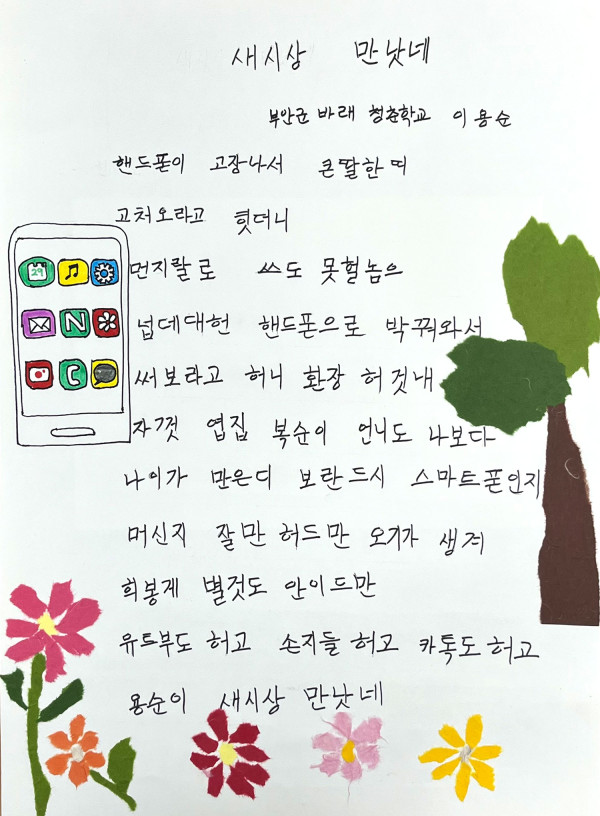 새시상 만낫네
부안군 바래 청춘학교 이용순
핸드폰이 고장나서 큰딸한띠
고처오라고 힛더니
먼지랄로 쓰도 못헐놈으
넙데대헌 핸드폰으로 박꿔와서
써보라고 허니 환장 허것내
자껏 엽집 복순이 언니도 나보다
나이가 만은디 보란드시 스마트폰인지
머신지 잘만 허드만 오기가 생겨
희봉게 별것도 안이드만
유트부도 허고 손지들 허고 카톡도 허고
용순이 새시상 만낫네
29
N